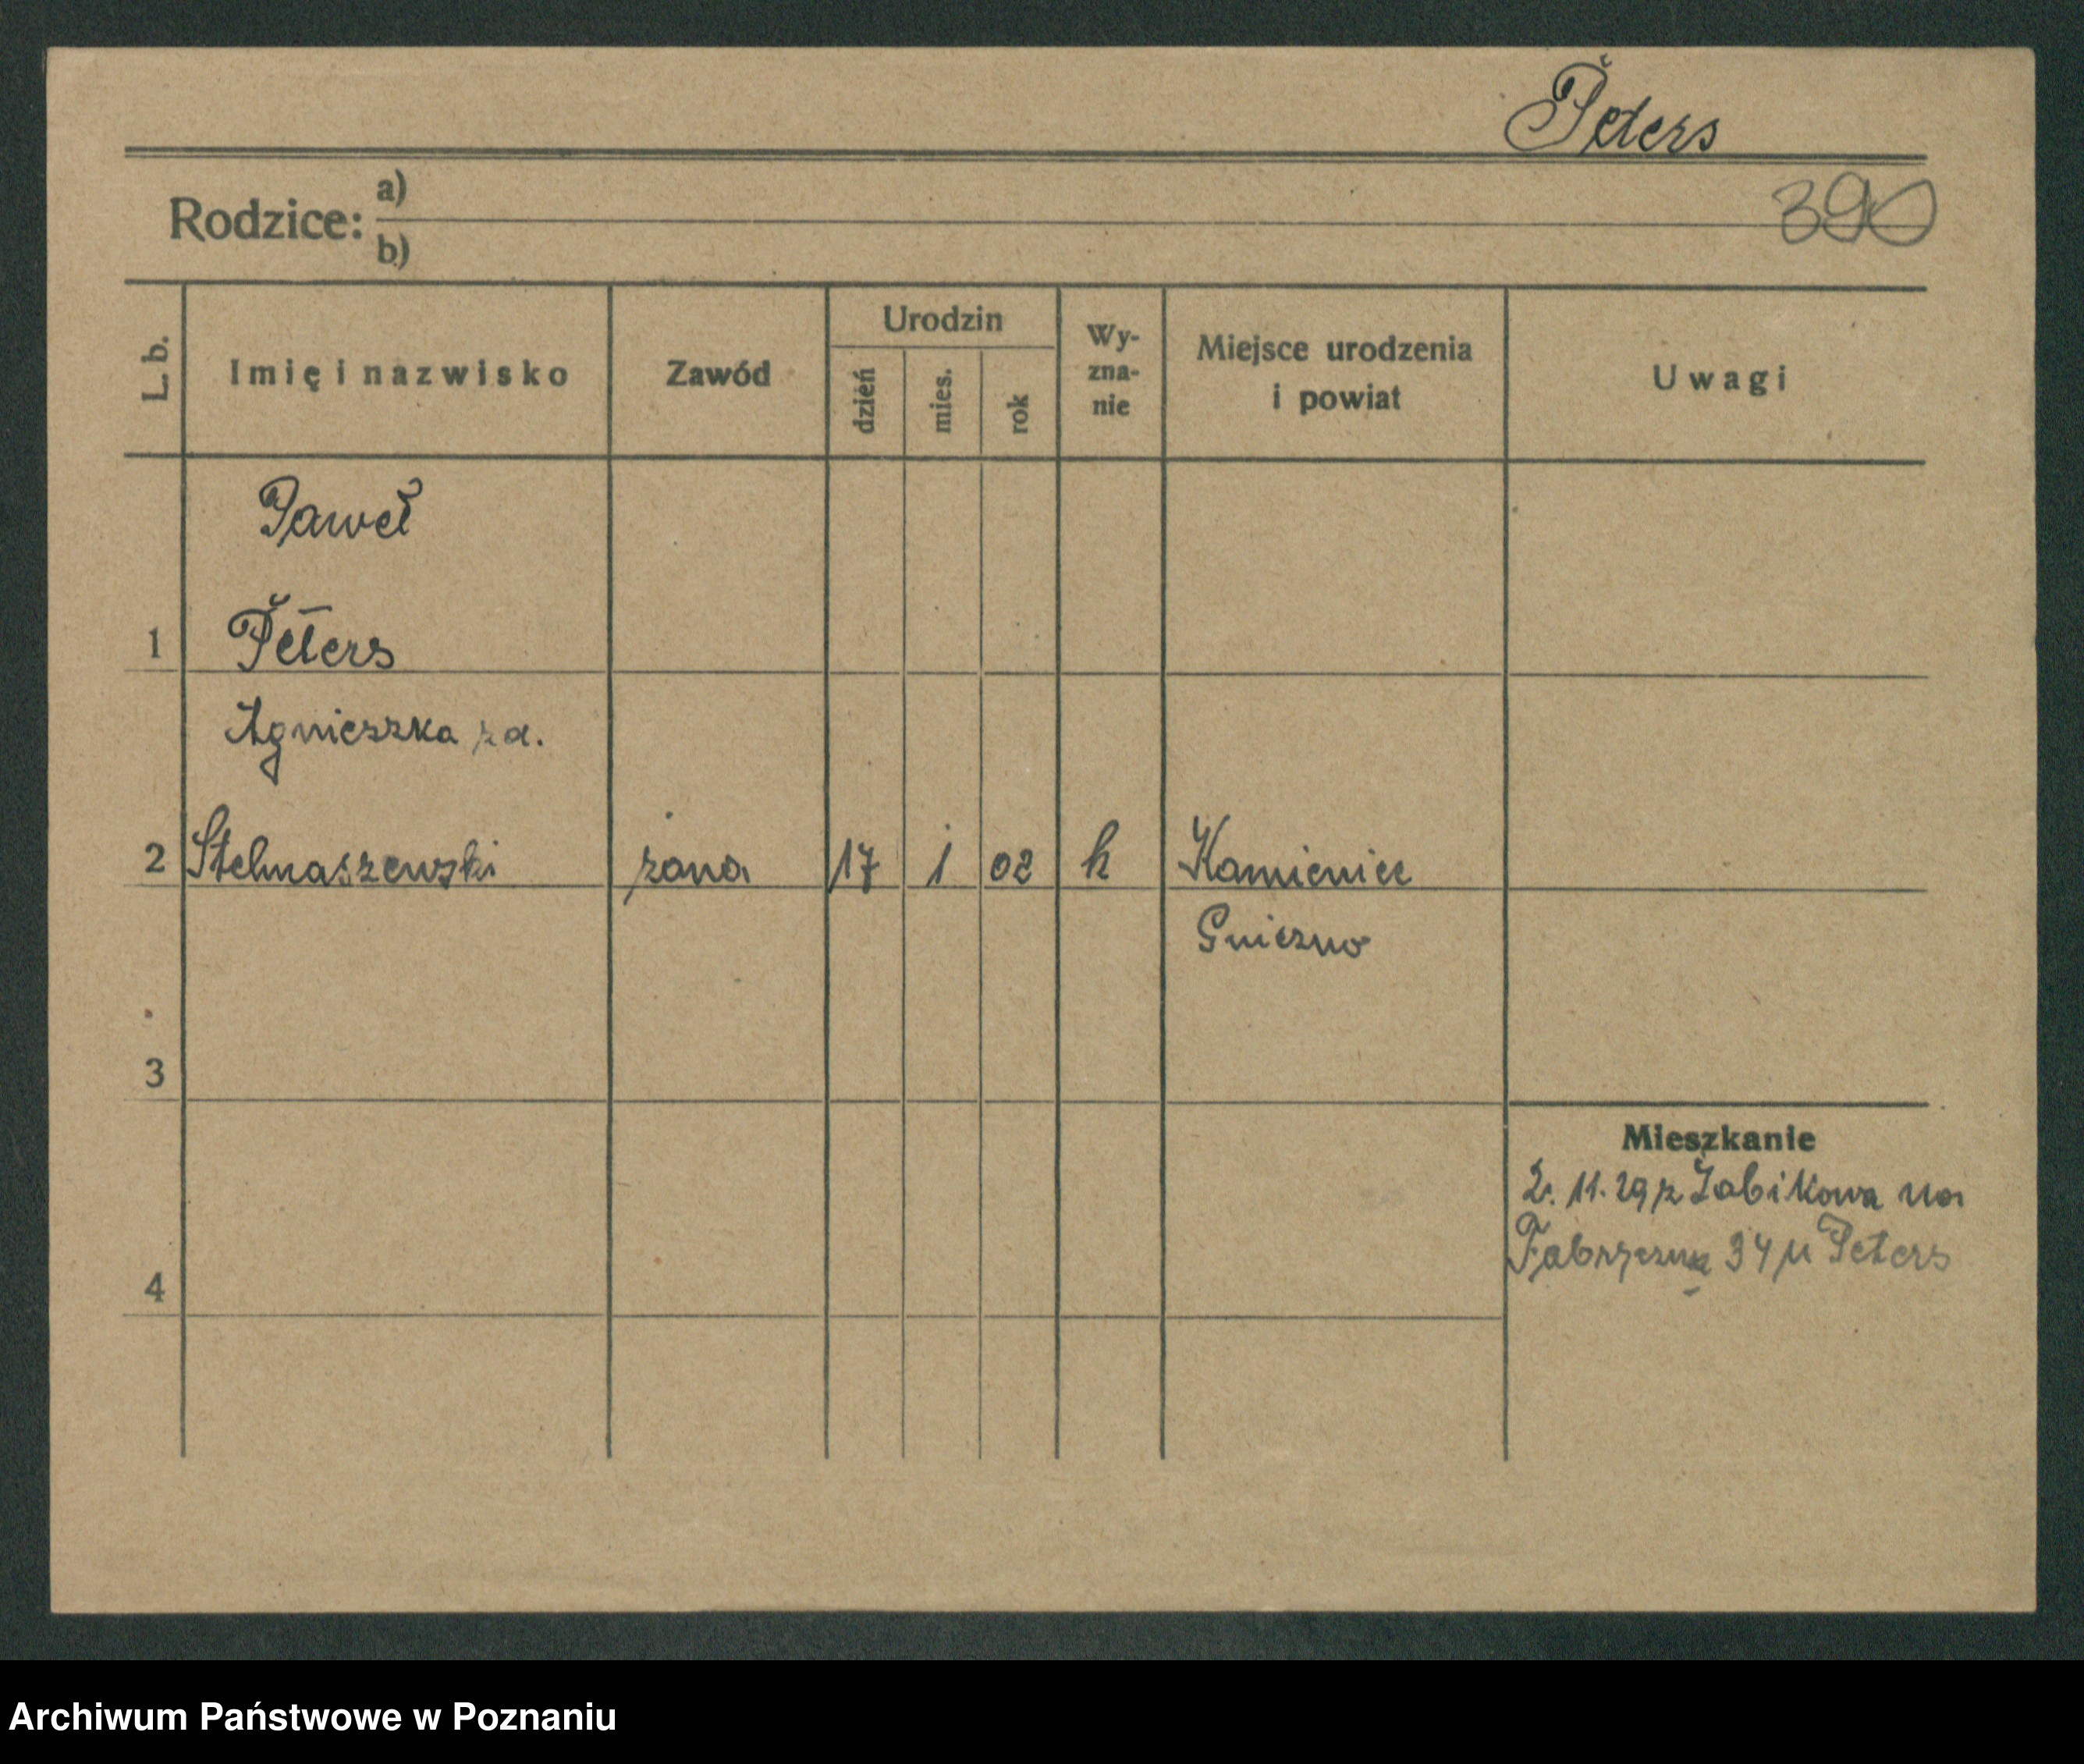 Peters
Rodzice: a)
b)
390
L. b.
Imię i nazwisko
Zawód
Urodzin
dzień
mies.
rok
Wy-
zna-
nie
Miejsce urodzenia
i powiat
Uwagi
Paweł
1 Peters
Agnieszka za.
2 Stelmaszewski żona 17 1 02 k Kamieniec
Gniezno
3
Mieszkanie
2. 11. 29 z Żabikowa na
Fabryczna 34 u Peters
4
Archiwum Państwowe w Poznaniu